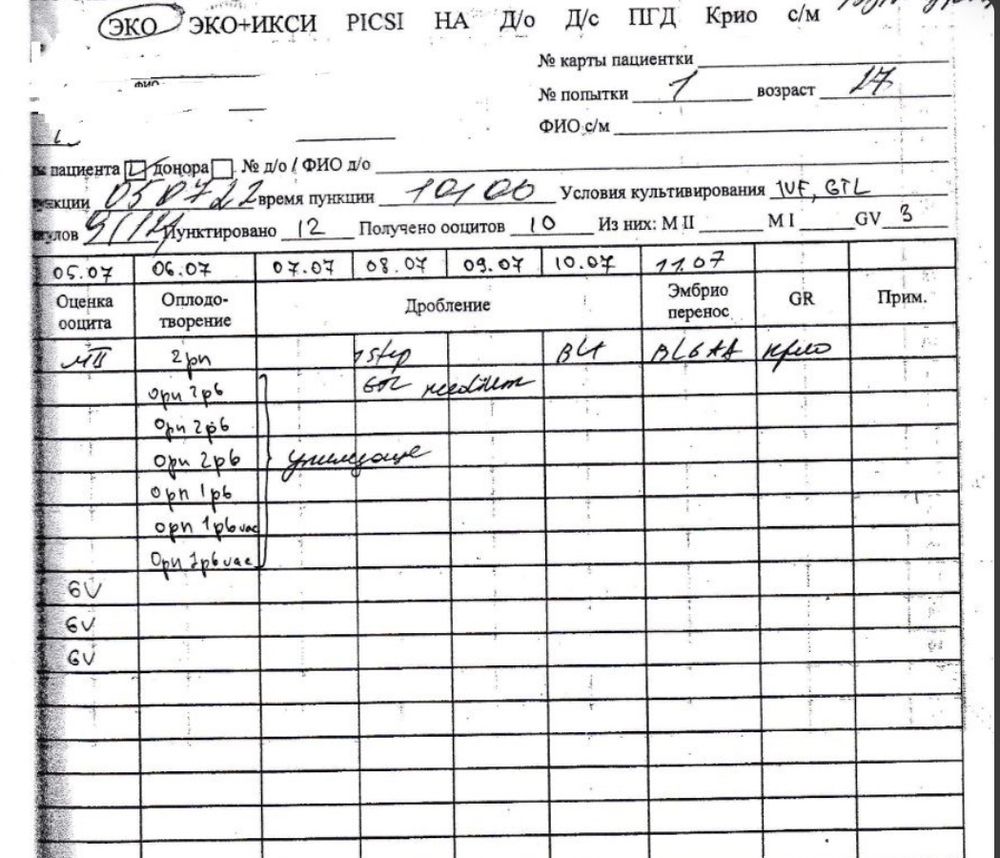 ЭКО ЭКО+ИКСИ PICSI НА Д/о Д/с ПГД Крио с/м
№ карты пациентки
ФИО
№ попытки 1 возраст 27
ФИО с/м
пациента донора № д/о / ФИО д/о
нкции 050722 время пункции Условия культивирования IVF, GTL
улов 9/12 Пунктировано 12 Получено ооцитов 10 Из них: М II М I GV 3
05.07 06.07 07.07 08.07 09.07 10.07 11.07
Оценка ооцита Оплодо-творение Дробление Эмбрио перенос GR Прим.
MII 2pn 1step BL4 BL6AA крио
0pn 2pb GTL medium
0pn 2pb
0pn 2pb
0pn 1pb
0pn 1pb vac
0pn 1pb vac
GV
GV
GV